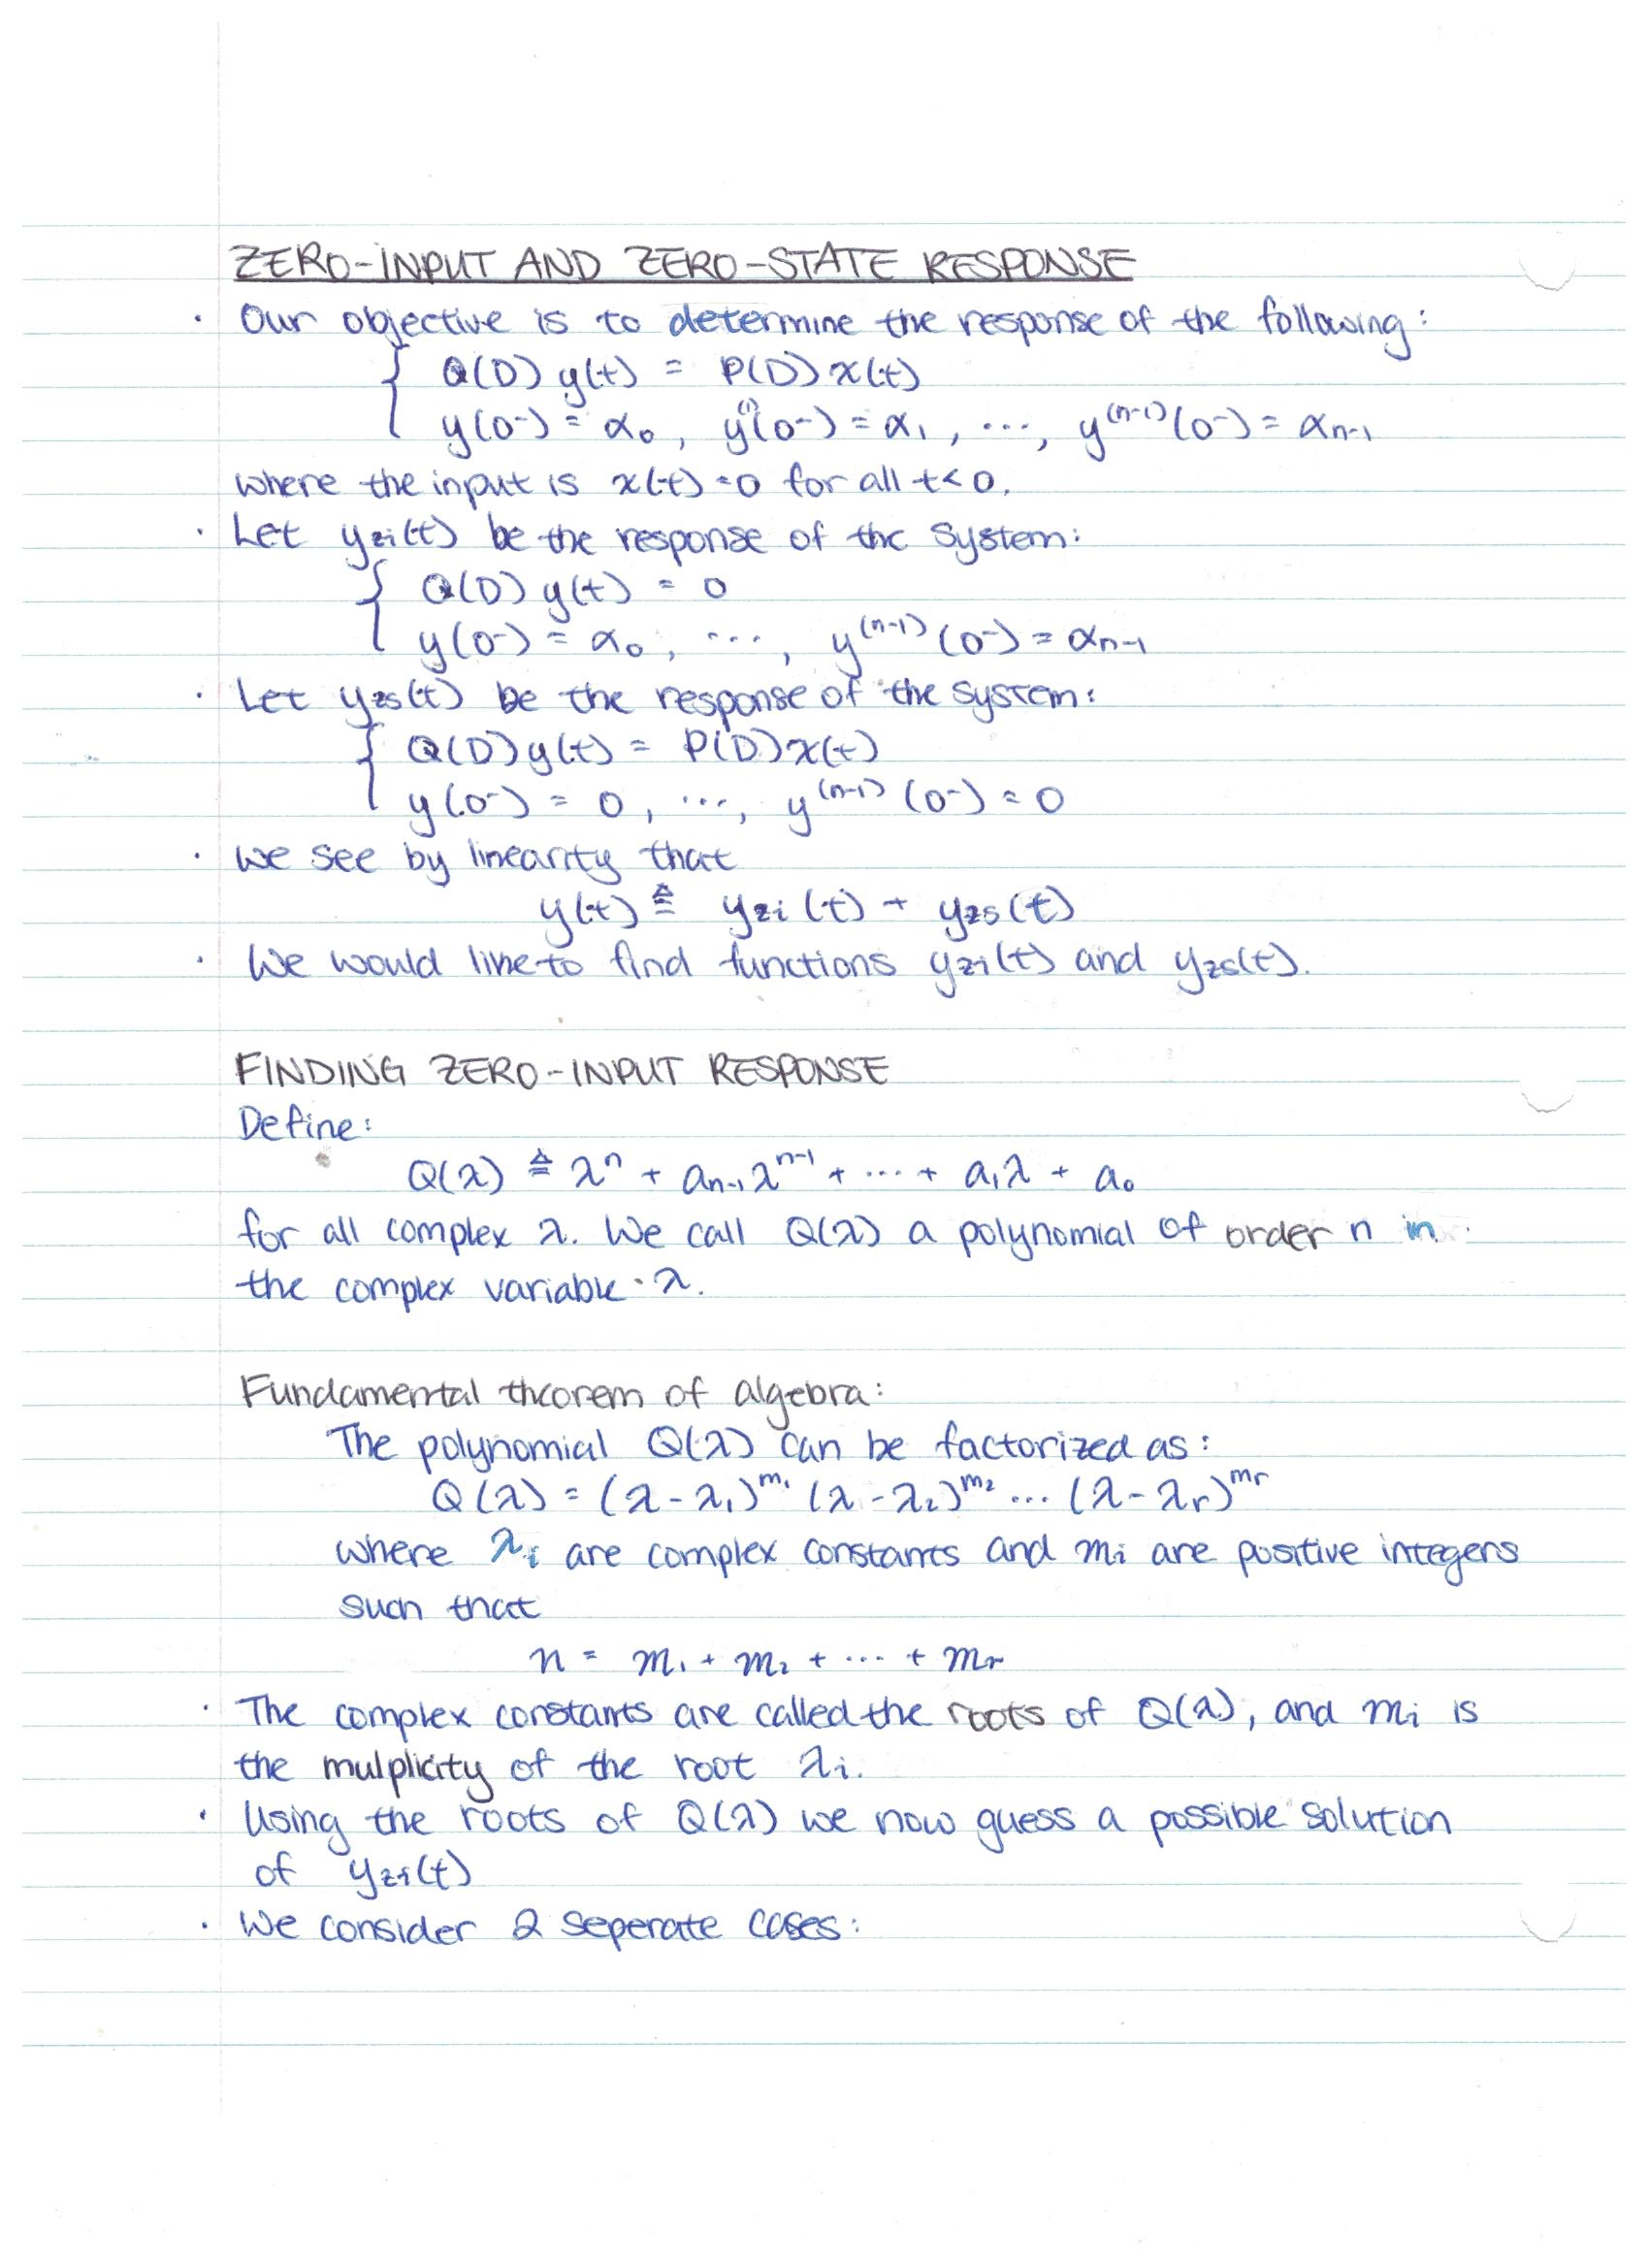 ZERO-INPUT AND ZERO-STATE RESPONSE
· Our objective is to determine the response of the following:
{ Q(D) y(t) = P(D) x(t)
y(0⁻) = α₀, y⁽¹⁾(0⁻) = α₁, ..., y⁽ⁿ⁻¹⁾(0⁻) = αₙ₋₁
where the input is x(t) = 0 for all t < 0.
· Let y_zi(t) be the response of the system:
{ Q(D) y(t) = 0
y(0⁻) = α₀, ..., y⁽ⁿ⁻¹⁾(0⁻) = αₙ₋₁
· Let y_zs(t) be the response of the system:
{ Q(D) y(t) = P(D) x(t)
y(0⁻) = 0, ..., y⁽ⁿ⁻¹⁾(0⁻) = 0
· We see by linearity that
y(t) ≜ y_zi(t) + y_zs(t)
· We would like to find functions y_zi(t) and y_zs(t).
FINDING ZERO-INPUT RESPONSE
Define:
Q(λ) ≜ λⁿ + aₙ₋₁λⁿ⁻¹ + ... + a₁λ + a₀
for all complex λ. We call Q(λ) a polynomial of order n in
the complex variable λ.
Fundamental theorem of algebra:
The polynomial Q(λ) can be factorized as:
Q(λ) = (λ - λ₁)^m₁ (λ - λ₂)^m₂ ... (λ - λᵣ)^mᵣ
where λᵢ are complex constants and mᵢ are positive integers
such that
n = m₁ + m₂ + ... + mᵣ
· The complex constants are called the roots of Q(λ), and mᵢ is
the mulplicity of the root λᵢ.
· Using the roots of Q(λ) we now guess a possible solution
of y_zi(t)
· We consider 2 seperate cases: